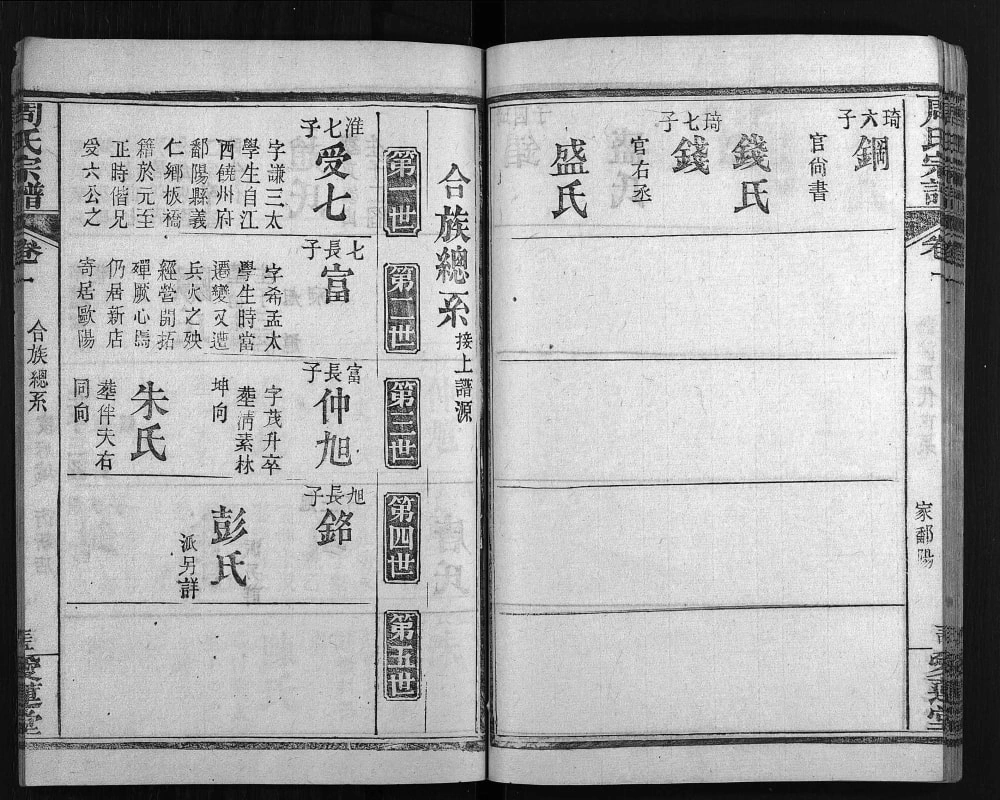 周氏宗譜
卷一
家鄱陽
愛蓮堂
琦六子
鋼
官尙書
錢氏
琦七子
錢
官右丞
盛氏
合族總系接上譜源
第一世
第二世
第三世
第四世
第五世
淮七子
受七
字謙三太
學生自江
西饒州府
鄱陽縣義
仁鄉板橋
籍於元至
正時偕兄
受六公之
七長子
富
字希孟太
學生時當
遷變又遭
兵火之殃
經營開拓
殫厥心焉
仍居新店
寄居歐陽
富長子
仲旭
字茂升卒
塟淸素林
坤向
朱氏
塟伴夫右
同向
旭長子
銘
彭氏
派另詳
周氏宗譜
卷一
合族總系
愛蓮堂